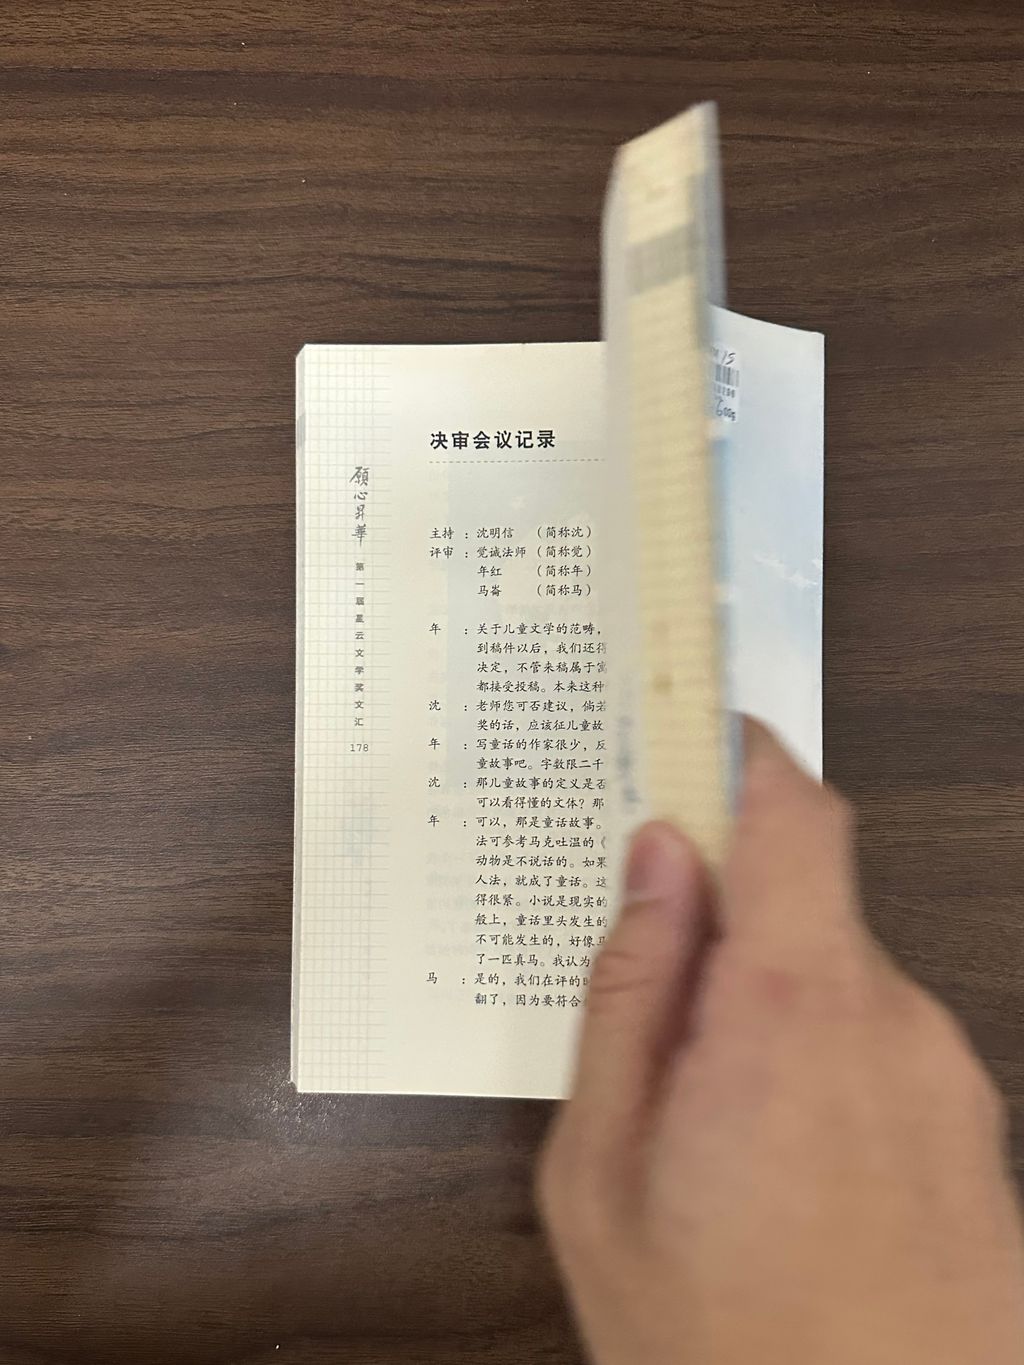 决审会议记录
主持：沈明信 （简称沈）
评审：觉诚法师（简称觉）
年红 （简称年）
马崙 （简称马）
年：关于儿童文学的范畴，
到稿件以后，我们还得
决定，不管来稿属于寓
都接受投稿。本来这种
沈：老师您可否建议，倘若
奖的话，应该征儿童故
年：写童话的作家很少，反
童故事吧。字数限二千
沈：那儿童故事的定义是否
可以看得懂的文体？那
年：可以，那是童话故事。
法可参考马克吐温的《
动物是不说话的。如果
人法，就成了童话。这
得很紧。小说是现实的
般上，童话里头发生的
不可能发生的，好像马
了一匹真马。我认为
马：是的，我们在评的时
翻了，因为要符合
願心昇華
第一届星云文学奖文汇
178
15